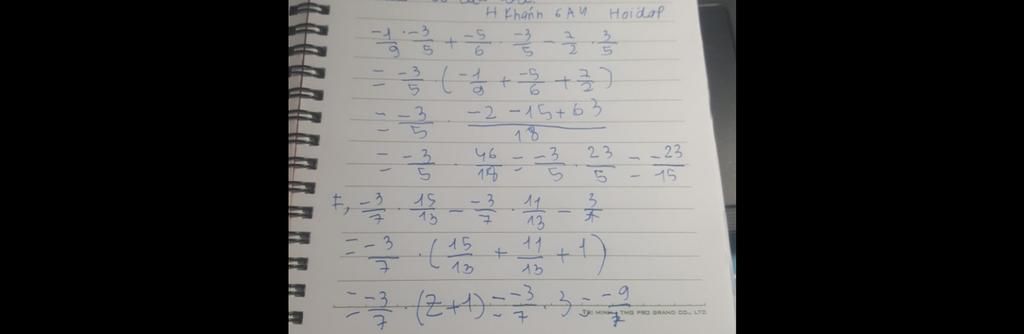 H Khánh 6A4 Hoidap
-1/9 · -3/5 + -5/6 · -3/5 - 7/2 · 3/5
= -3/5 · (-1/9 + -5/6 + 7/2)
= -3/5 · (-2 - 15 + 63)/18
= -3/5 · 46/18 = -3/5 · 23/5 = -23/15
F, -3/7 · 15/13 - -3/7 · 11/13 - 3/7
= -3/7 · (15/13 + 11/13 + 1)
= -3/7 · (2+1) = -3/7 · 3 = -9/7
TRI MINH - TMG PRO GRAND CO., LTD